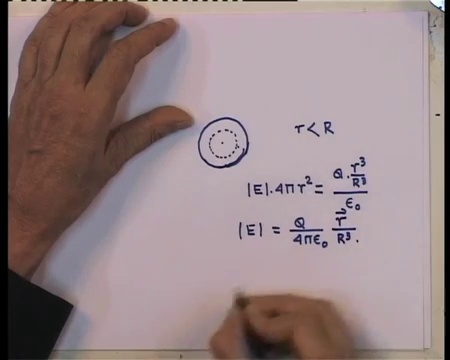 r < R
|E|. 4πr² = Q. r³/R³ / ε₀
|E| = Q/4πε₀ r⃗/R³.